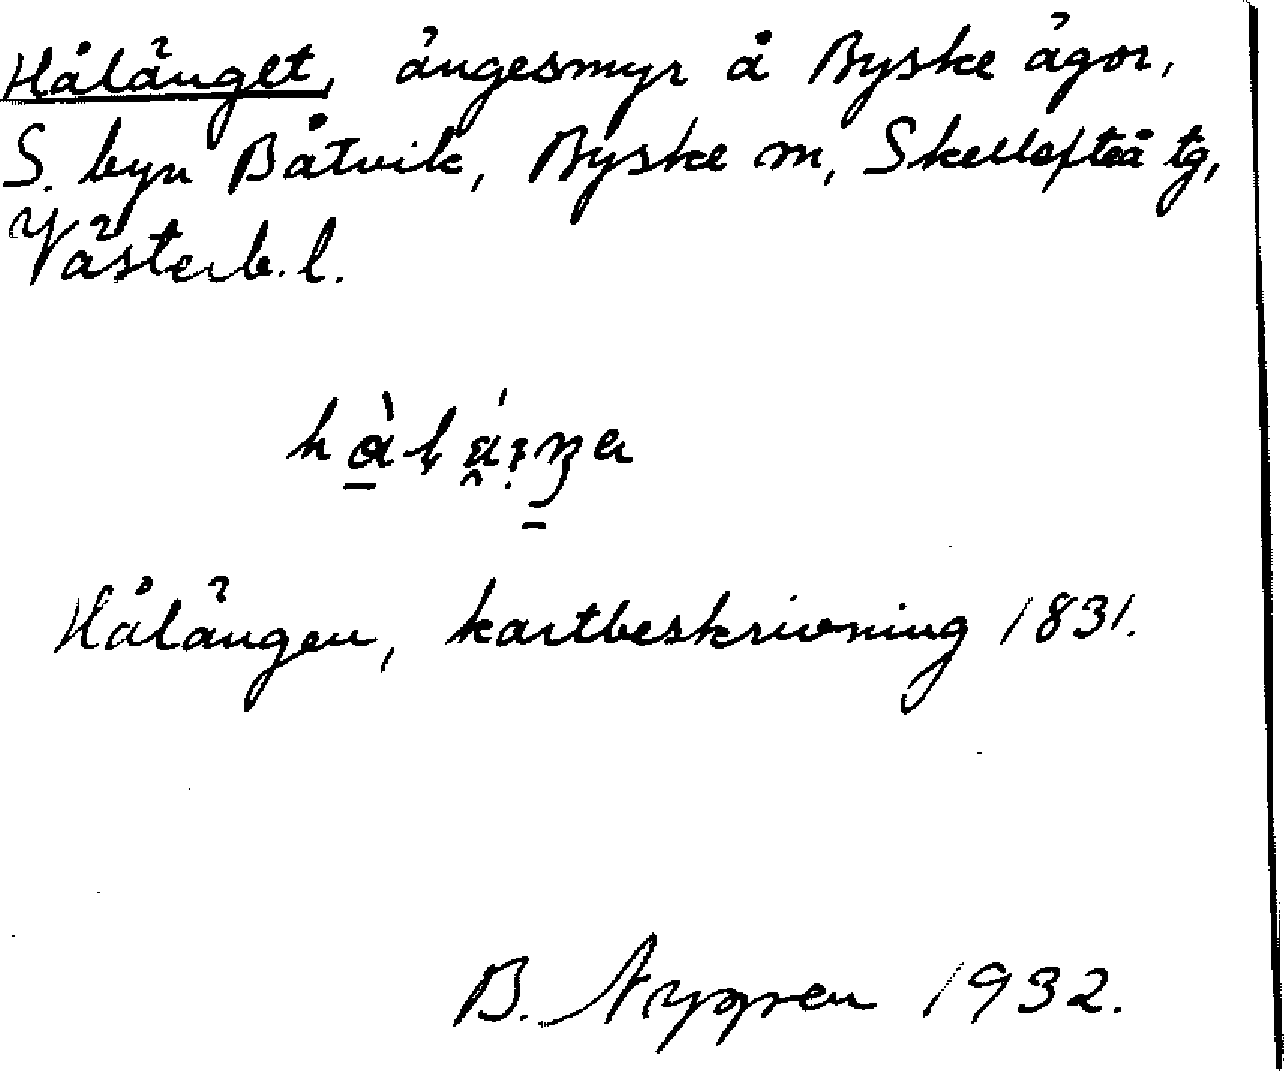 Hålänget, ängesmyr å Byske ägor,
S. byn Båtvik, Byske sn, Skellefteå tg,
Västerb. l.
Hålängen, kartbeskrivning 1831.
B. Nygren 1932.